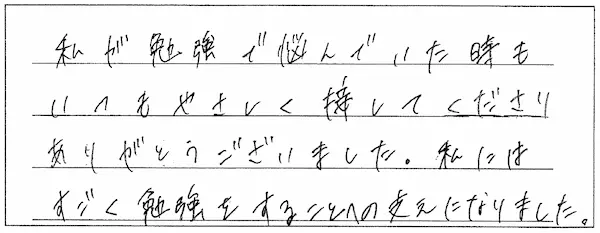 私が勉強で悩んでいた時も
いつもやさしく接してくださり
ありがとうございました。私には
すごく勉強をすることへの支えになりました。